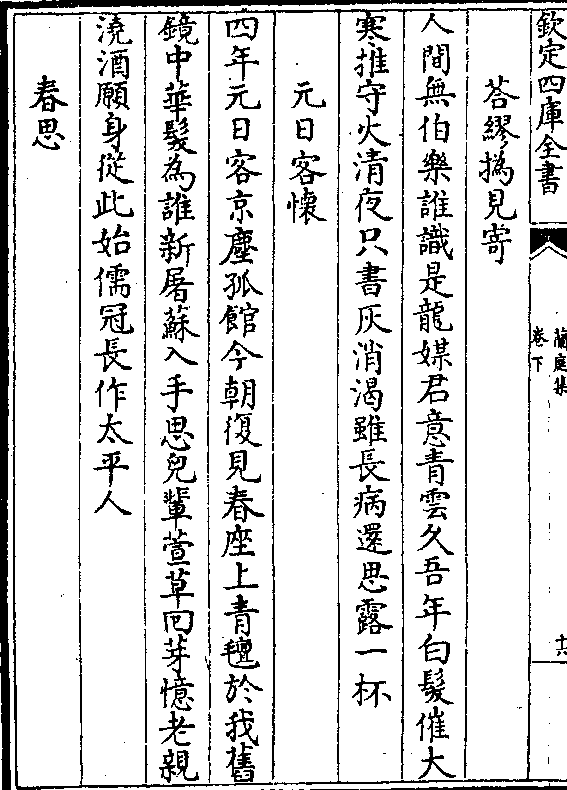 欽定四庫全書
蘭庭集
卷下
十六
荅繆撝見寄
人間無伯樂誰識是龍媒君意青雲久吾年白髮催大
寒推守火清夜只書灰消渴雖長病還思露一杯
元日客懷
四年元日客京塵孤館今朝復見春座上青氊於我舊
鏡中華髮為誰新屠蘇入手思兒輩萱草回芽憶老親
澆酒願身從此始儒冠長作太平人
春思